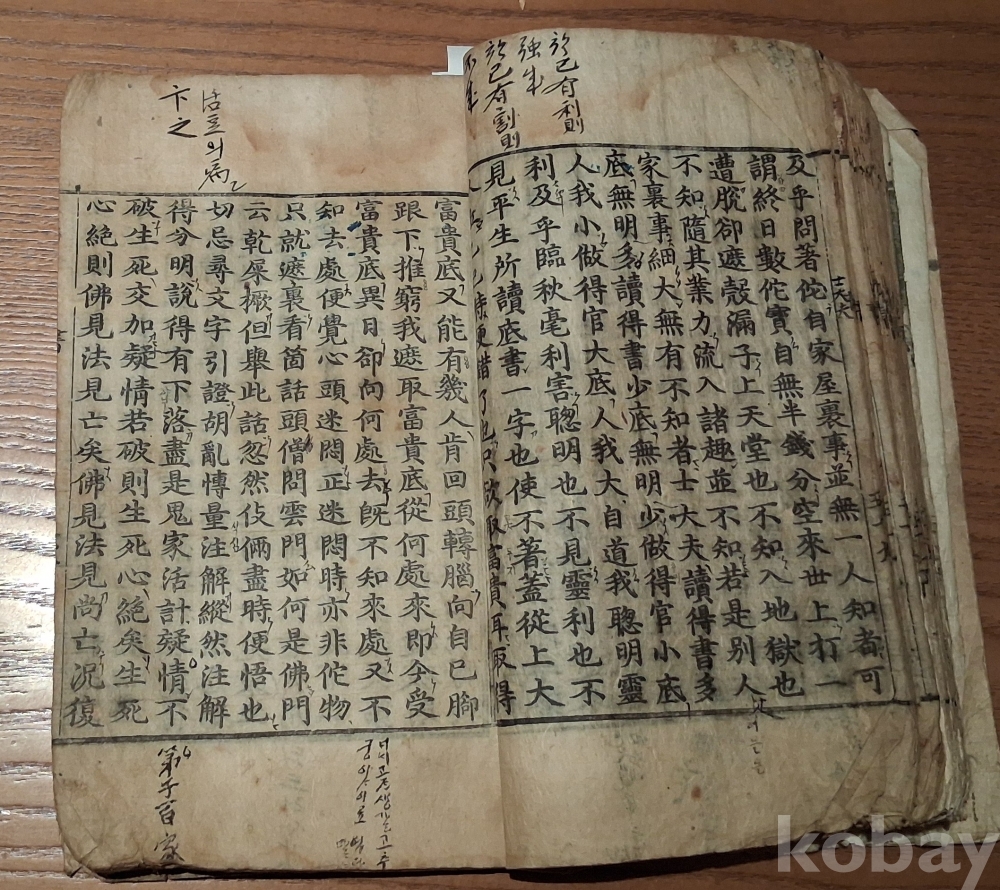 於己有利則
強牟
於己有割則
及乎問著佗自家屋裏事並無一人知者可
謂終日數佗寶自無半錢分空來世上打一
遭脫卻遮殼漏子上天堂也不知入地獄也
不知隨其業力流入諸趣並不知若是別人
家裏事細大無有不知者士大夫讀得書多
底無明多讀得書少底無明少做得官小底
人我小做得官大底人我大自道我聰明靈
利及乎臨秋毫利害聰明也不見靈利也不
見平生所讀底書一字也使不著蓋從上大
人 便錯了也只欲取富貴耳取得
富貴底又能有幾人肯回頭轉腦向自己腳
跟下推窮我遮取富貴底從何處來即今受
富貴底異日卻向何處去旣不知來處又不
知去處便覺心頭迷悶正迷悶時亦非佗物
只就遮裏看箇話頭僧問雲門如何是佛門
云乾屎橛但舉此話忽然伎倆盡時便悟也
切忌尋文字引證胡亂慱量注解縱然注解
得分明說得有下落盡是鬼家活計疑情不
破生死交加疑情若破則生死心絶矣生死
心絶則佛見法見亡矣佛見法見尚亡況復
卞之
第子百家
kobay